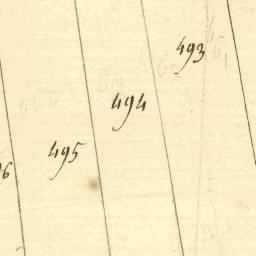 493
494
495